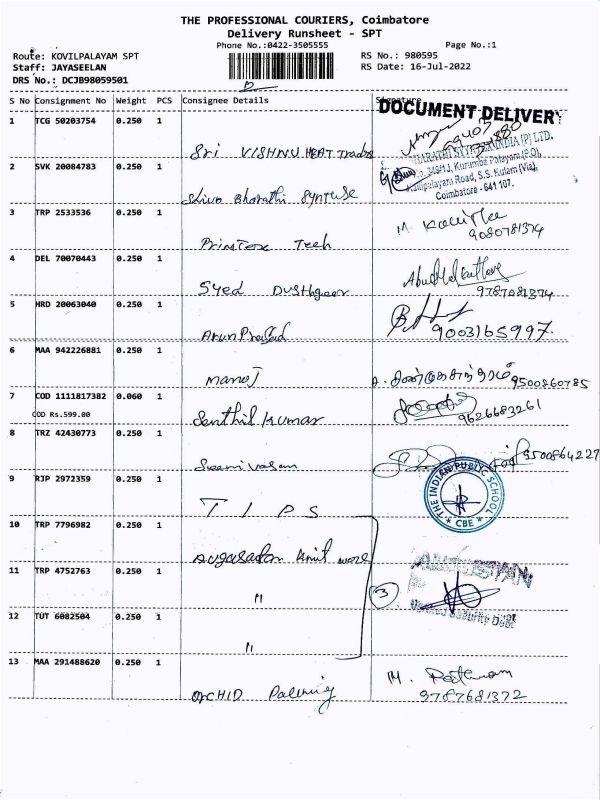 THE PROFESSIONAL COURIERS, Coimbatore
Delivery Runsheet - SPT
Phone No.:0422-3505555
Page No.:1
Route: KOVILPALAYAM SPT
RS No.: 980595
Staff: JAYASEELAN
RS Date: 16-Jul-2022
DRS No.: DCJB98059501
S No Consignment No Weight PCS Consignee Details Signature
DOCUMENT DELIVERY
1 TCG 50203754 0.250 1
Sri VISHNU HEAT Traders
INDIA (P) LTD.
2 SVK 20084783 0.250 1
349/1J, Kurumba Palayam (P.O),
Road, S.S. Kulam (Via),
Coimbatore - 641 107.
Shiva Bharathi Syntuse
3 TRP 2533536 0.250 1
9080781374
Primtex Tech
4 DEL 70070443 0.250 1
Syed Dusthgeer
9787081374
5 HRD 20063040 0.250 1
ArunPrasad
9003165997
6 MAA 942226881 0.250 1
manoj
9500860785
7 COD 1111817382 0.060 1
COD Rs.599.00
Senthil Kumar
9626683261
8 TRZ 42430773 0.250 1
9500864227
Sreenivasan
9 RJP 2972359 0.250 1
THE INDIAN PUBLIC SCHOOL
* CBE *
T I P S
10 TRP 7796982 0.250 1
11 TRP 4752763 0.250 1
"
3
12 TUT 6082504 0.250 1
Security Dept
"
13 MAA 291488620 0.250 1
9787681372
ORCHID